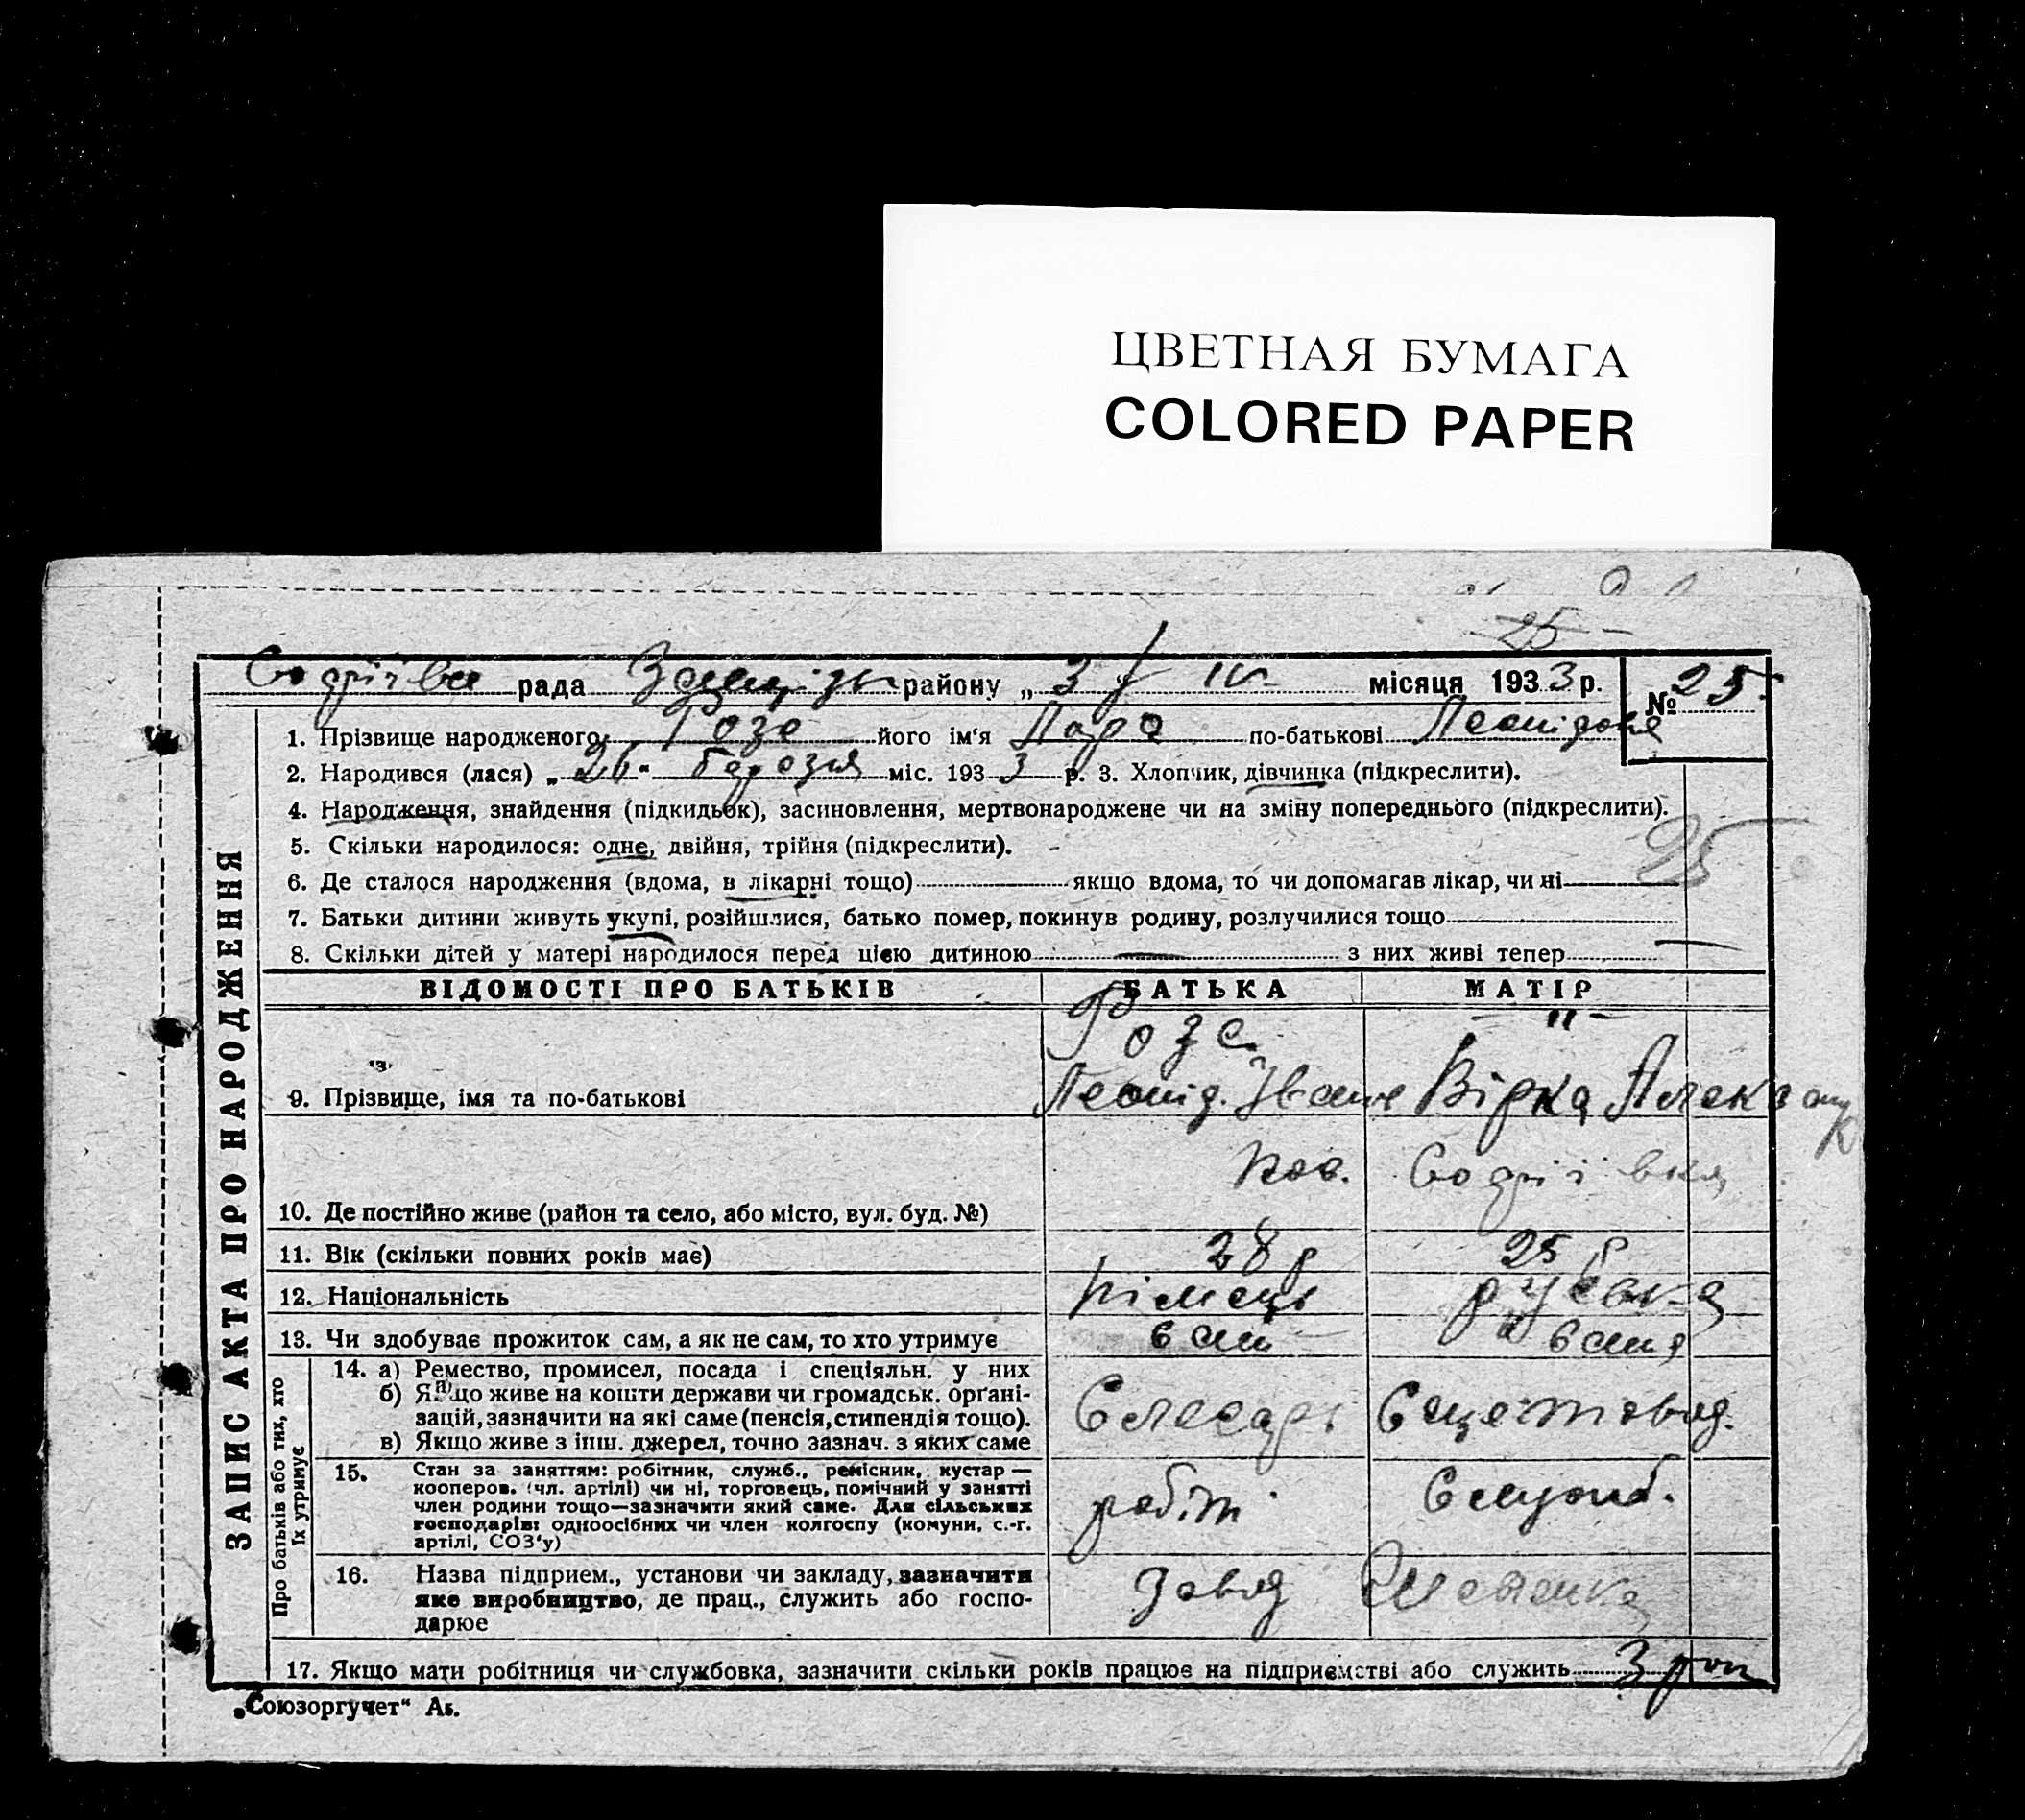 ЦВЕТНАЯ БУМАГА
COLORED PAPER
25
рада району „ 3 / IV місяця 1933 р. № 25
1. Прізвище народженого Розе його ім'я Лара по-батькові Леонідовна
2. Народився (лася) „ 26 " березня міс. 1933 р. 3. Хлопчик, дівчинка (підкреслити).
4. Народження, знайдення (підкидьок), засиновлення, мертвонароджене чи на зміну попереднього (підкреслити).
5. Скільки народилося: одне, двійня, трійня (підкреслити).
25
6. Де сталося народження (вдома, в лікарні тощо) якщо вдома, то чи допомагав лікар, чи ні —
7. Батьки дитини живуть укупі, розійшлися, батько помер, покинув родину, розлучилися тощо
8. Скільки дітей у матері народилося перед цією дитиною — з них живі тепер —
ЗАПИС АКТА ПРО НАРОДЖЕННЯ
ВІДОМОСТІ ПРО БАТЬКІВ БАТЬКА МАТІР
Розе — " —
9. Прізвище, імя та по-батькові Леонід. Іван Вірка Александ
10. Де постійно живе (район та село, або місто, вул. буд. №)
11. Вік (скільки повних років має) 28 р 25 р
12. Національність німець руська
13. Чи здобуває прожиток сам, а як не сам, то хто утримує сам сама
Про батьків або тих, хто їх утримує
14. а) Ремество, промисел, посада і спеціяльн. у них
б) Якщо живе на кошти держави чи громадськ. орґані-
зацій, зазначити на які саме (пенсія, стипендія тощо). Слесарь
в) Якщо живе з інш. джерел, точно зазнач. з яких саме
15. Стан за заняттям: робітник, служб., ремісник, кустар —
кооперов. (чл. артілі) чи ні, торговець, помічний у занятті
член родини тощо—зазначити який саме. Для сільських робіт Служб.
господарів: одноосібних чи член колгоспу (комуни, с.-г.
артілі, СОЗ'у)
16. Назва підприєм., установи чи закладу, зазначити завод
яке виробництво, де прац., служить або госпо-
дарює
17. Якщо мати робітниця чи службовка, зазначити скільки років працює на підприємстві або служить 3 рок
„Союзоргучет" Аг.